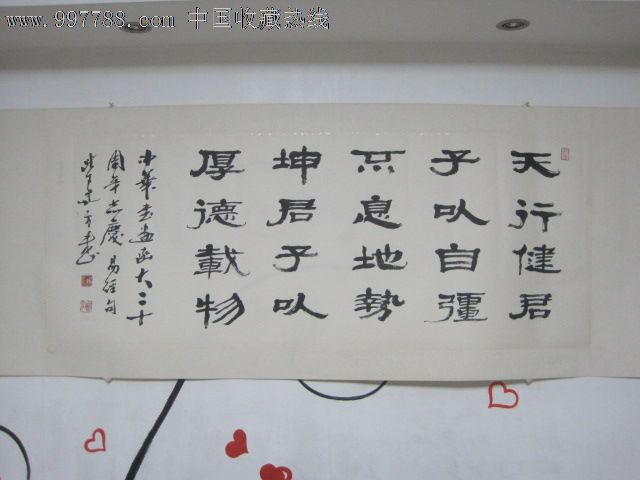 www.997788.com 中国收藏热线
天行健君
子以自彊
不息地勢
坤君子以
厚德載物
中華書畫函大二十
周年志慶 易經句